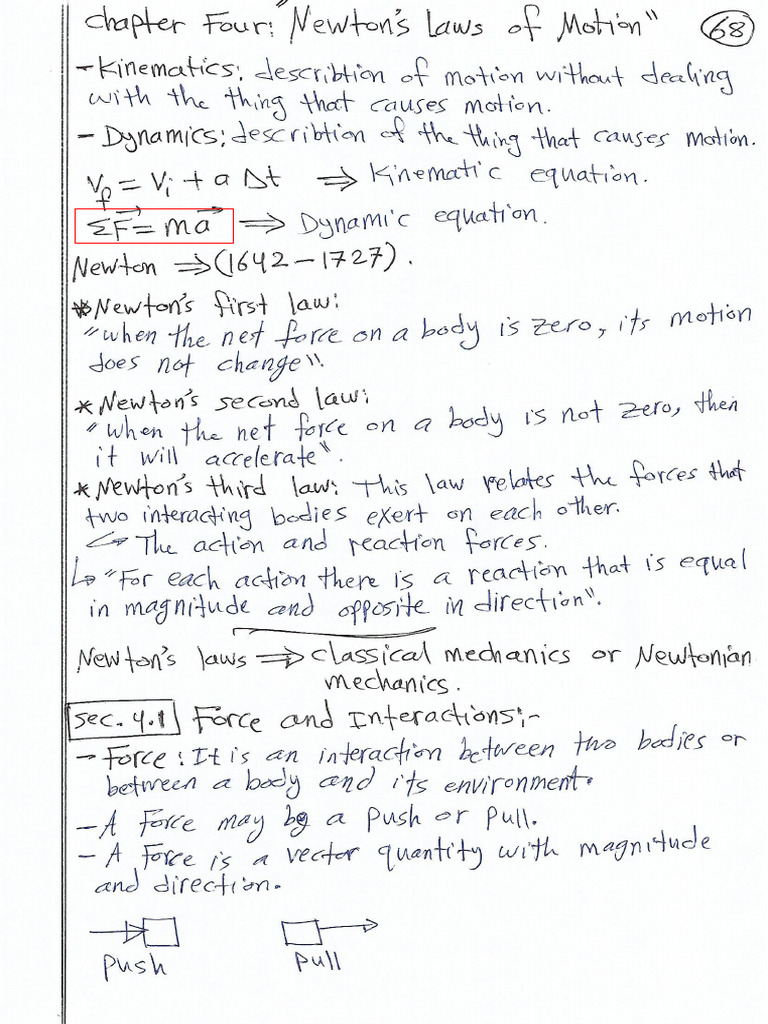 Chapter Four: "Newton's Laws of Motion" 68
- Kinematics: describtion of motion without dealing
with the thing that causes motion.
- Dynamics: describtion of the thing that causes motion.
Vf = Vi + a Δt ⇒ Kinematic equation.
ΣF⃗ = ma⃗ ⇒ Dynamic equation.
Newton ⇒ (1642 – 1727).
* Newton's first law:
"when the net force on a body is zero, its motion
does not change".
* Newton's second law:
"when the net force on a body is not zero, then
it will accelerate".
* Newton's third law: This law relates the forces that
two interacting bodies exert on each other.
↪ The action and reaction forces.
↳ "For each action there is a reaction that is equal
in magnitude and opposite in direction".
Newton's laws ⇒ classical mechanics or Newtonian
mechanics.
Sec. 4.1 Force and Interactions:-
- Force: It is an interaction between two bodies or
between a body and its environment.
- A Force may be a push or pull.
- A Force is a vector quantity with magnitude
and direction.
push pull